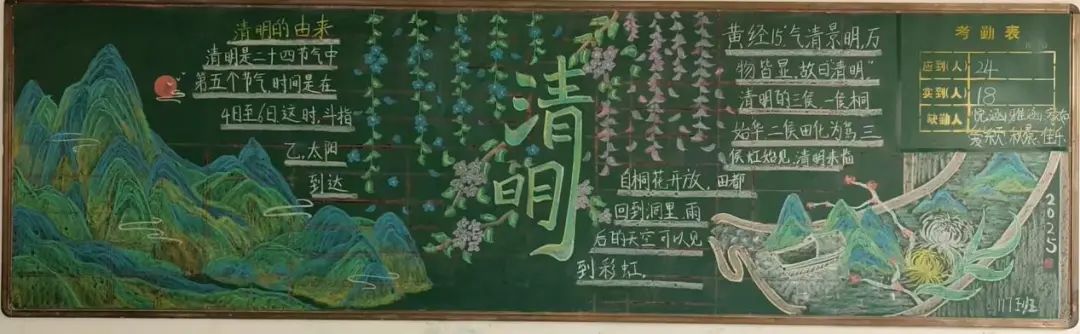 清明的由来
清明是二十四节气中
第五个节气,时间是在
4日至6日这时,斗指
乙,太阳
到达
清明
黄经15°气清景明,万
物皆显,故曰"清明"
清明的三侯,一侯桐
始华二侯田化为鸟,三
侯虹始见,清明来临
白桐花开放,田都
回到洞里,雨
后的天空可以见
到彩虹.
考勤表
应到(人) 24
实到(人) 18
缺勤人
2025
117班